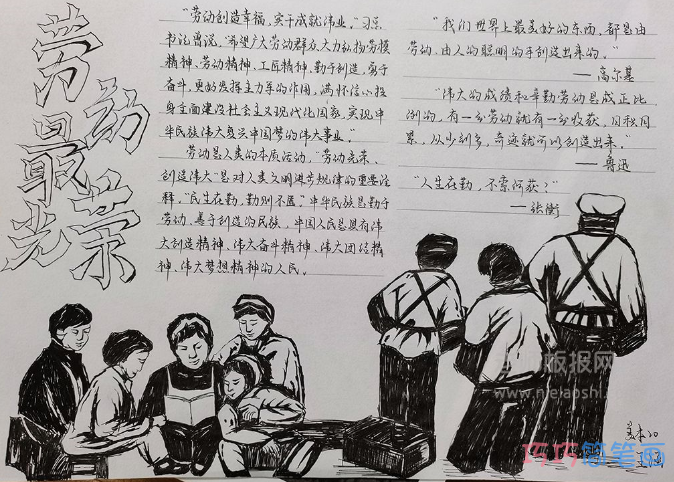 劳动
最
光荣
"劳动创造幸福,实干成就伟业。"习总
书记曾说,"希望广大劳动群众大力弘扬劳模
精神、劳动精神、工匠精神,勤于创造、勇于
奋斗,更好发挥主力军的作用,满怀信心投
身全面建设社会主义现代化国家、实现中
华民族伟大复兴中国梦的伟大事业。"
劳动是人类的本质活动,"劳动光荣、
创造伟大"是对人类文明进步规律的重要诠
释,"民生在勤,勤则不匮。"中华民族是勤于
劳动、善于创造的民族,中国人民是具有伟
大创造精神、伟大奋斗精神、伟大团结精
神、伟大梦想精神的人民。
"我们世界上最美好的东西,都是由
劳动、由人的聪明的手创造出来的。"
——高尔基
"伟大的成绩和辛勤劳动是成正比
例的,有一分劳动就有一分收获,日积月
累,从少到多,奇迹就可以创造出来。"
——鲁迅
"人生在勤,不索何获?"
——张衡
板报网
巧巧简笔画